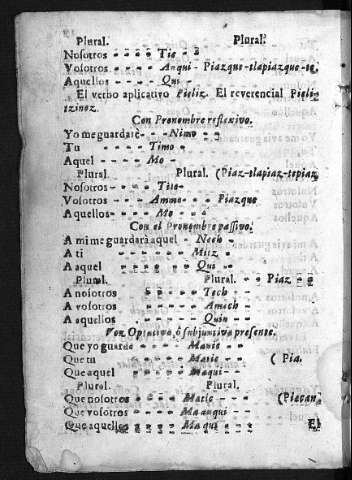 Plural. Plural.
Nosotros - - - - Tic - -
Vosotros - - - - Anqui - Piazque-tlapiazque-te.
Aquellos - - - - Qui - -
El verbo aplicativo Pieliz. El reverencial Pieli-
tzinoz.
Con Pronombre reflexivo.
Yo me guardarè - - - Nimo - -
Tu - - - - Timo -
Aquel - - - - Mo - -
Plural. Plural. (Piaz-tlapiaz-tepiaz
Nosotros - - - - Tito-
Vosotros - - - - Ammo - - - Piazque
Aquellos - - - - Mo - -
Con el Pronombre passivo.
A mi me guardarà aquel - Nech - -
A ti - - - - Mitz - -
A aquel - - - - Qui - -
Plural. Plural. - - Piaz - -
A nosotros - - - - Tech - -
A vosotros - - - - Amech - -
A aquellos - - - - Quin - -
Voz Optativa, ó subjuntiva presente.
Que yo guarde - - - - Manic - -
Que tu - - - - Matic - - ( Pia.
Que aquel - - - - Maqui - -
Plural. Plural.
Que nosotros - - - - Matic - - (Piacan,
Que vosotros - - - - Maanqui - -
Que aquellos - - - - Maqui - - El